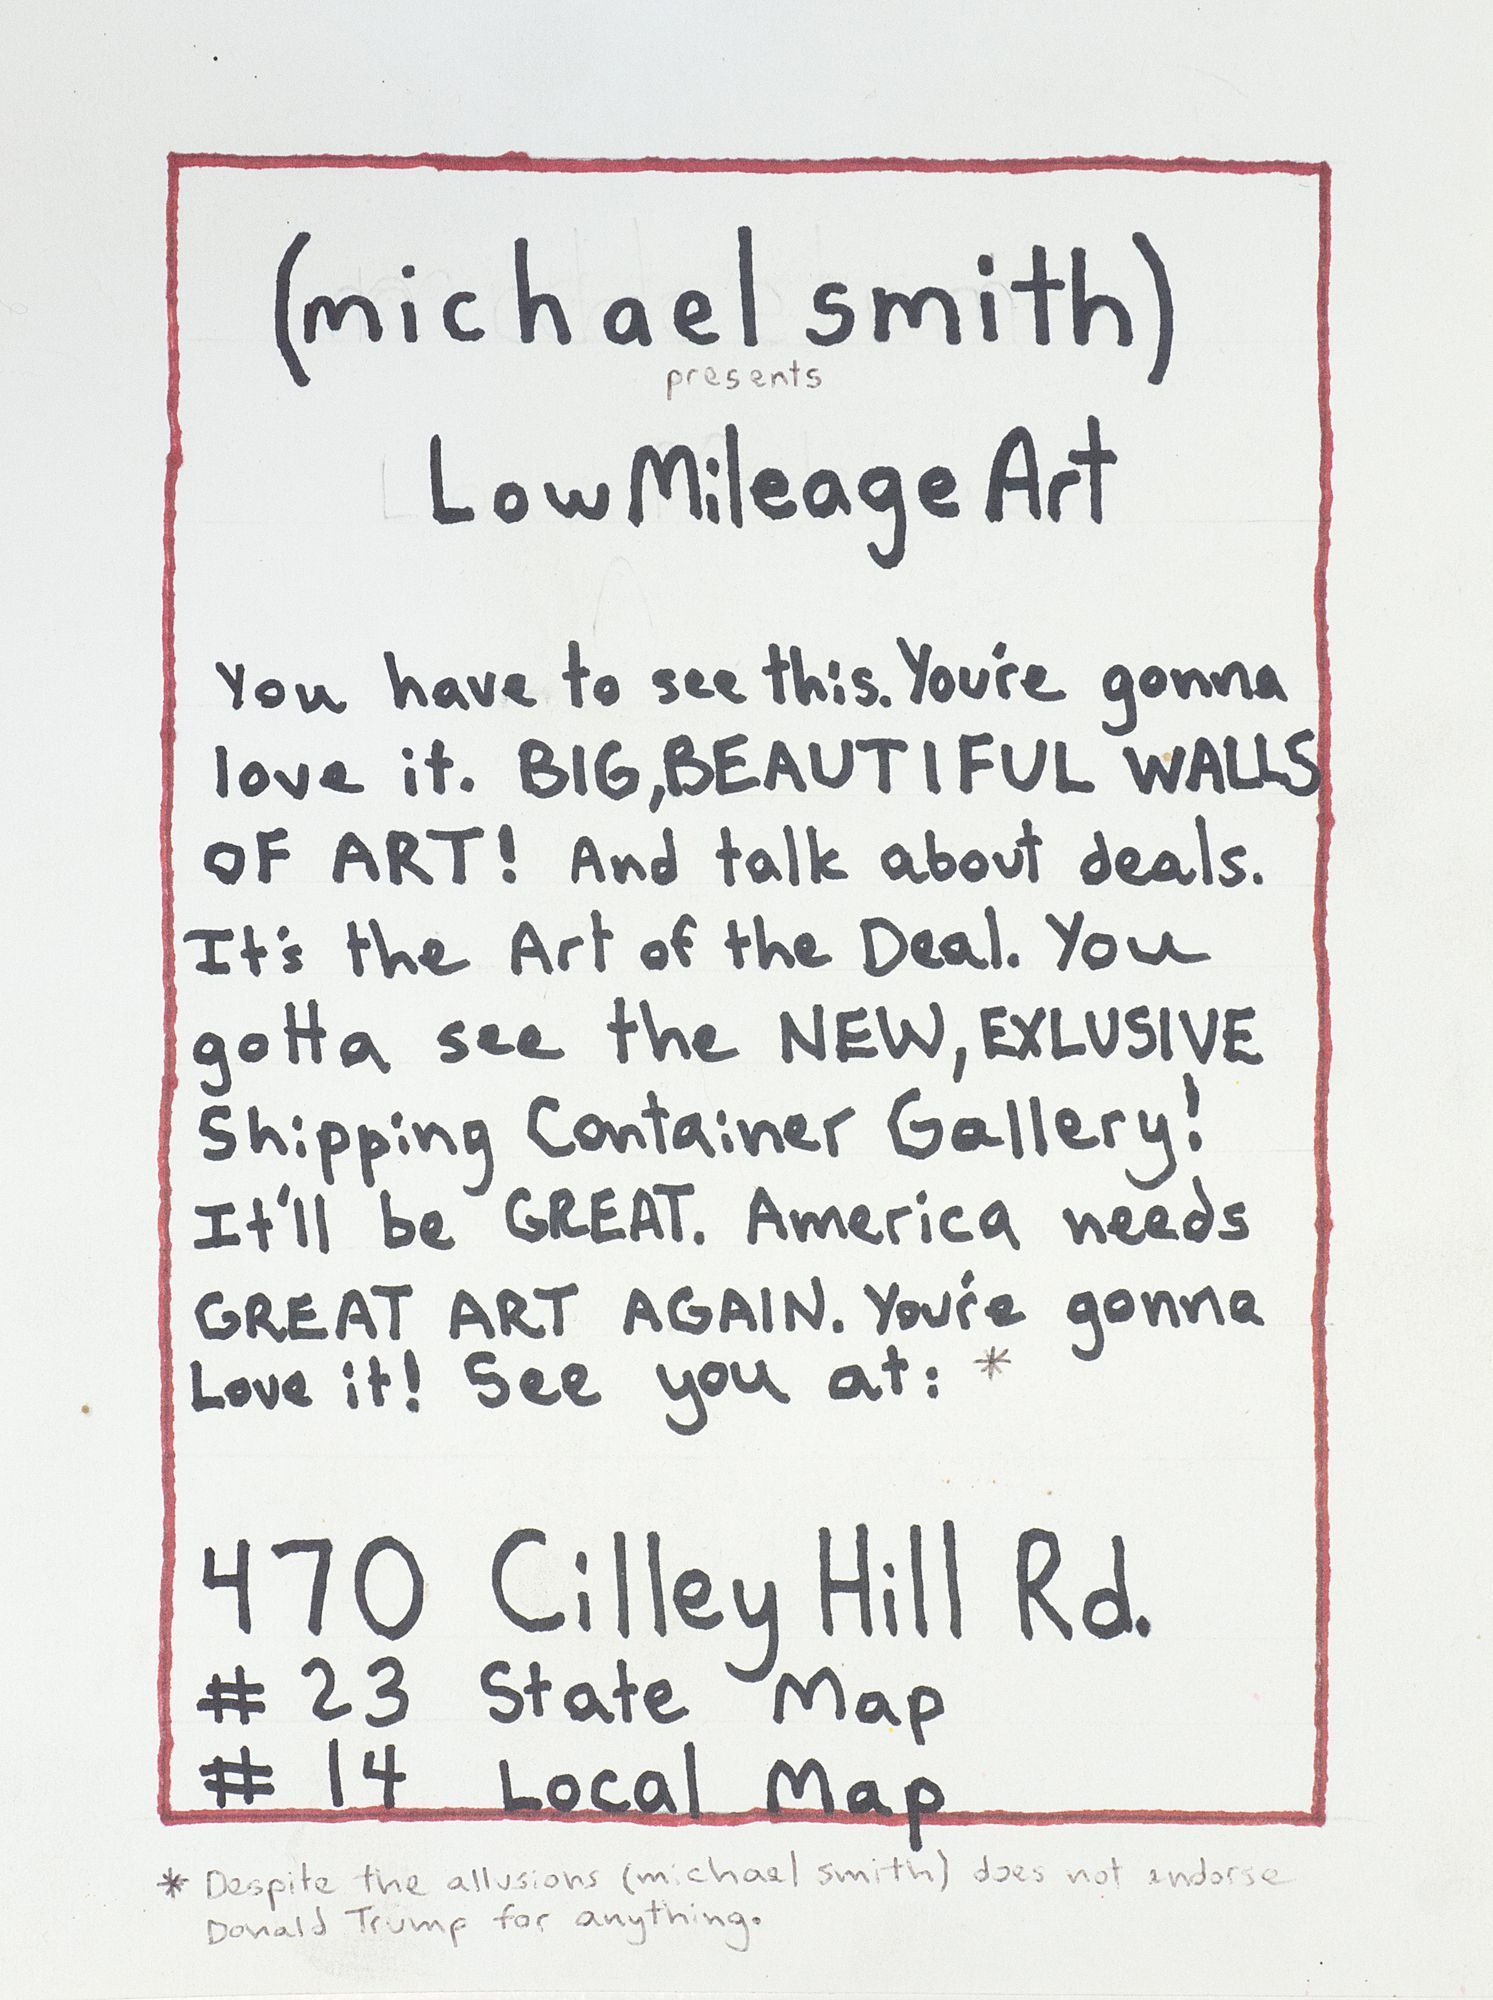 (michael smith)
presents
Low Mileage Art
You have to see this. You're gonna
love it. BIG, BEAUTIFUL WALLS
OF ART! And talk about deals.
It's the Art of the Deal. You
gotta see the NEW, EXLUSIVE
Shipping Container Gallery!
It'll be GREAT. America needs
GREAT ART AGAIN. You're gonna
Love it! See you at: *
470 Cilley Hill Rd.
# 23 State Map
# 14 Local Map
* Despite the allusions (michael smith) does not endorse
Donald Trump for anything.